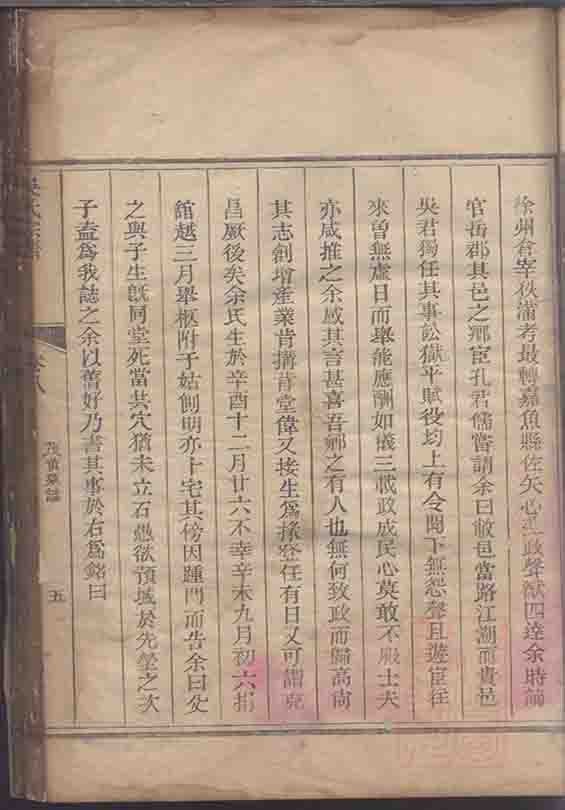 徐州倉宰秩滿考最轉嘉魚縣佐矢心為政聲猷四達余時筮
官岳郡其邑之鄉宦孔君儒嘗請余曰敝邑當路江湖而貴邑
吳君獨任其事訟獄平賦役均上有令聞下無怨聲且遊宦往
來曾無虛日而舉能應酬如儀三載政成民心莫敢不服士夫
亦咸推之余感其言甚喜吾鄉之有人也無何致政而歸高尚
其志創增產業肯搆肯堂偉又接生為掾登任有日又可謂克
昌厥後矣余氏生於辛酉十二月廿六不幸辛未九月初六捐
館越三月舉柩附于姑側明亦卜宅其傍因踵門而告余曰父
之與子生既同堂死當共穴猶未立石愚欲預域於先塋之次
子盍為我誌之余以舊好乃書其事於右為銘曰
吳氏宗譜
卷八
墓誌
五